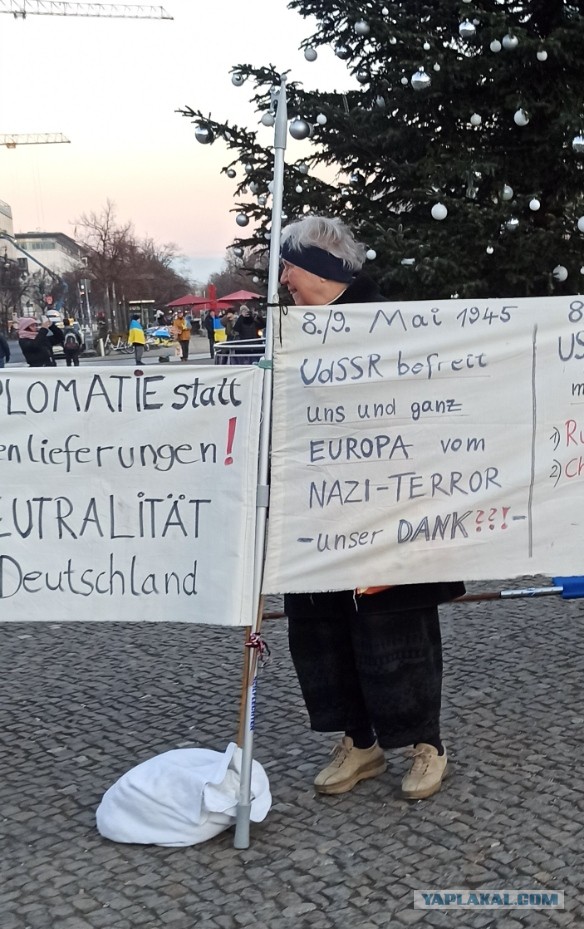 PLOMATIE statt
enlieferungen!
EUTRALITÄT
Deutschland
8./9. Mai 1945
UdSSR befreit
uns und ganz
EUROPA vom
NAZI-TERROR
-unser DANK??!-
8
US
m
1) Ru
2) Ch
YAPLAKAL.COM